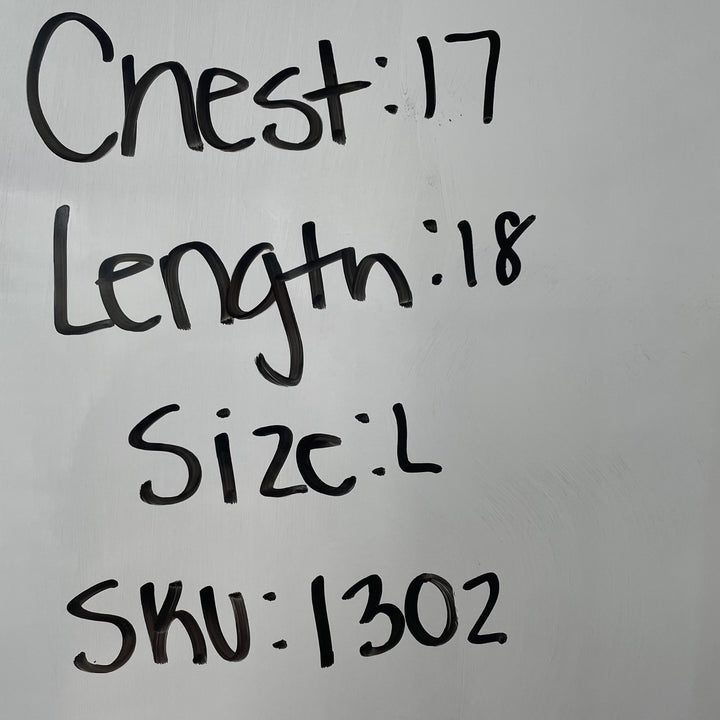 Chest:17
Length:18
Size:L
SKU:1302